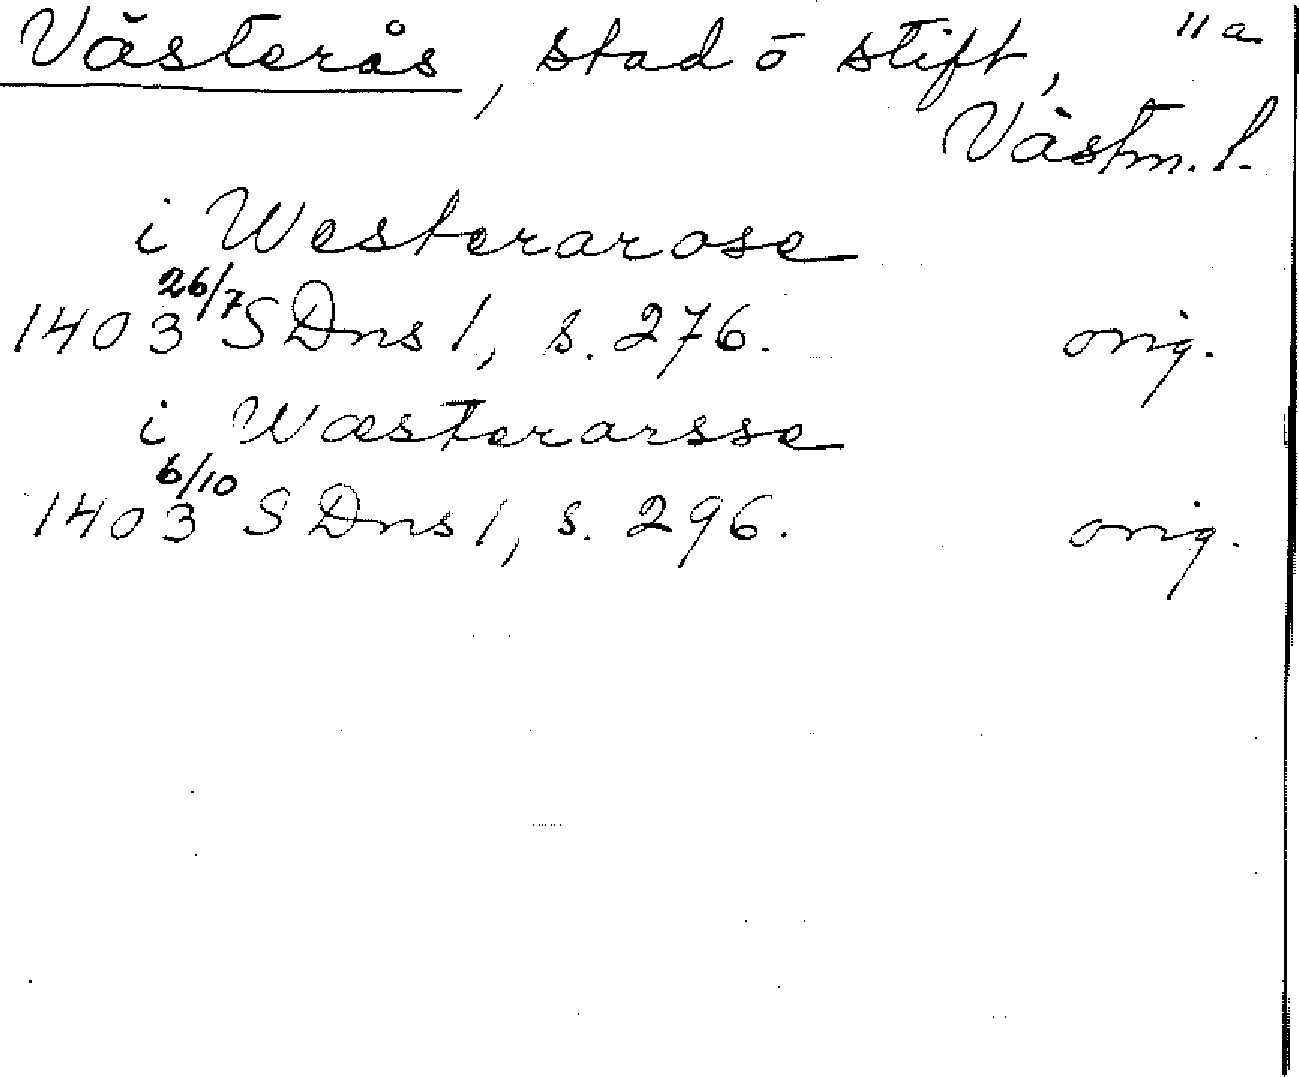 Västerås, stad ō stift, 11 a
Västm. l.
i Westerarose
1403 26/7 SDns 1, s. 276. orig.
i Wæsterarsse
1403 6/10 SDns 1, s. 296. orig.